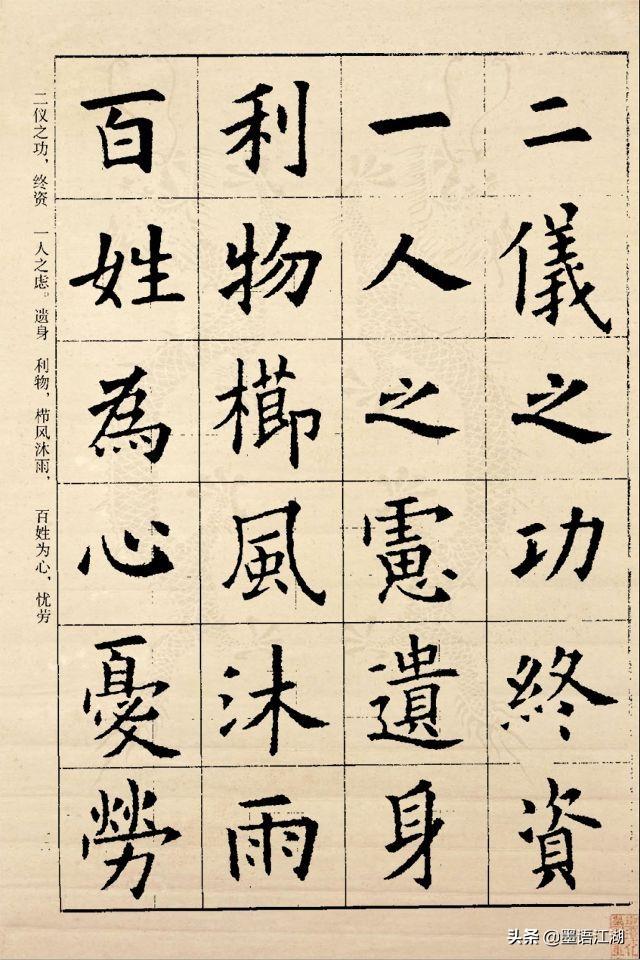 二儀之功終資
一人之慮遺身
利物櫛風沐雨
百姓為心憂勞
二仪之功，终资 一人之虑。遗身 利物，栉风沐雨， 百姓为心，忧劳
头条@墨语江湖